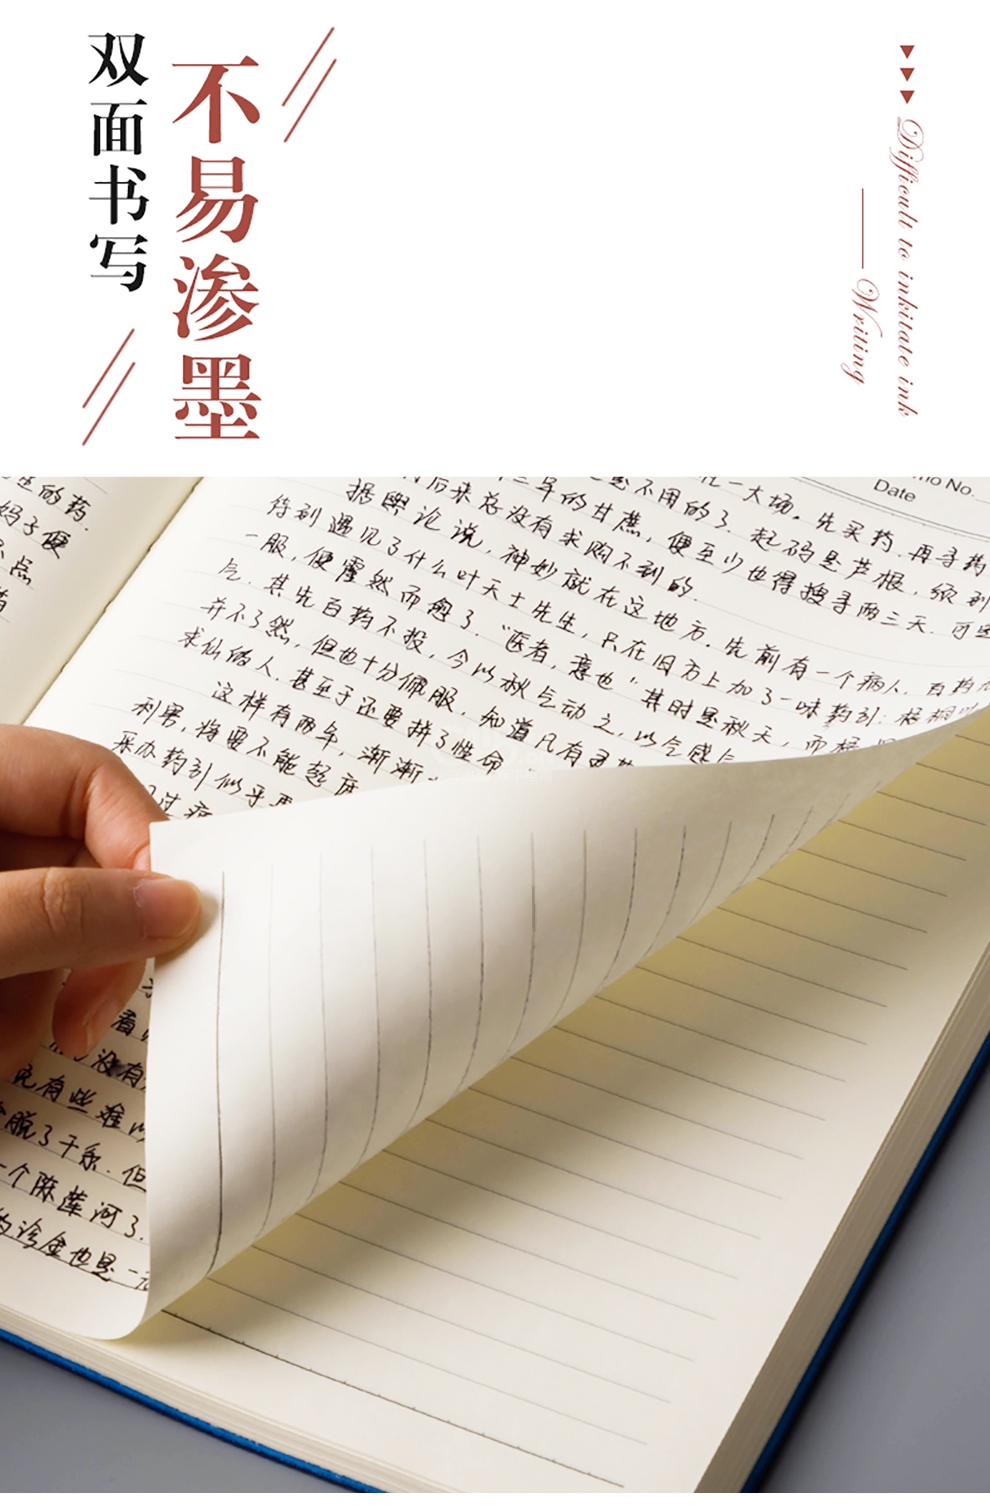 不易渗墨
双面书写
Difficult to inkitate ink
Writing
Date
No.
一大场。先买药.再寻药
三年的甘蔗,便至少也得搜寻两三天.
不用的了.起码是芦根,须到
后来总没有求购不到的.
据舆论说,神妙就在这地方.先前有一个病人.百药
待到遇见了什么叶天士先生,只在旧方上加了一味药引:梧桐
一服,便霍然而愈了."医者,意也"其时是秋天,而梧
气.其先百药不投,今以秋气动之,以气感气
并不了然,但也十分佩服.知道凡有灵药
求仙的人.甚至于还要拼了性命
这样有两年,渐渐
利害,将要不能起床
采办药引似乎再
生的药.
妈子便
点
看
没有
有些难以
脱了干系.但
一个陈莲河了.
的诊金也是一